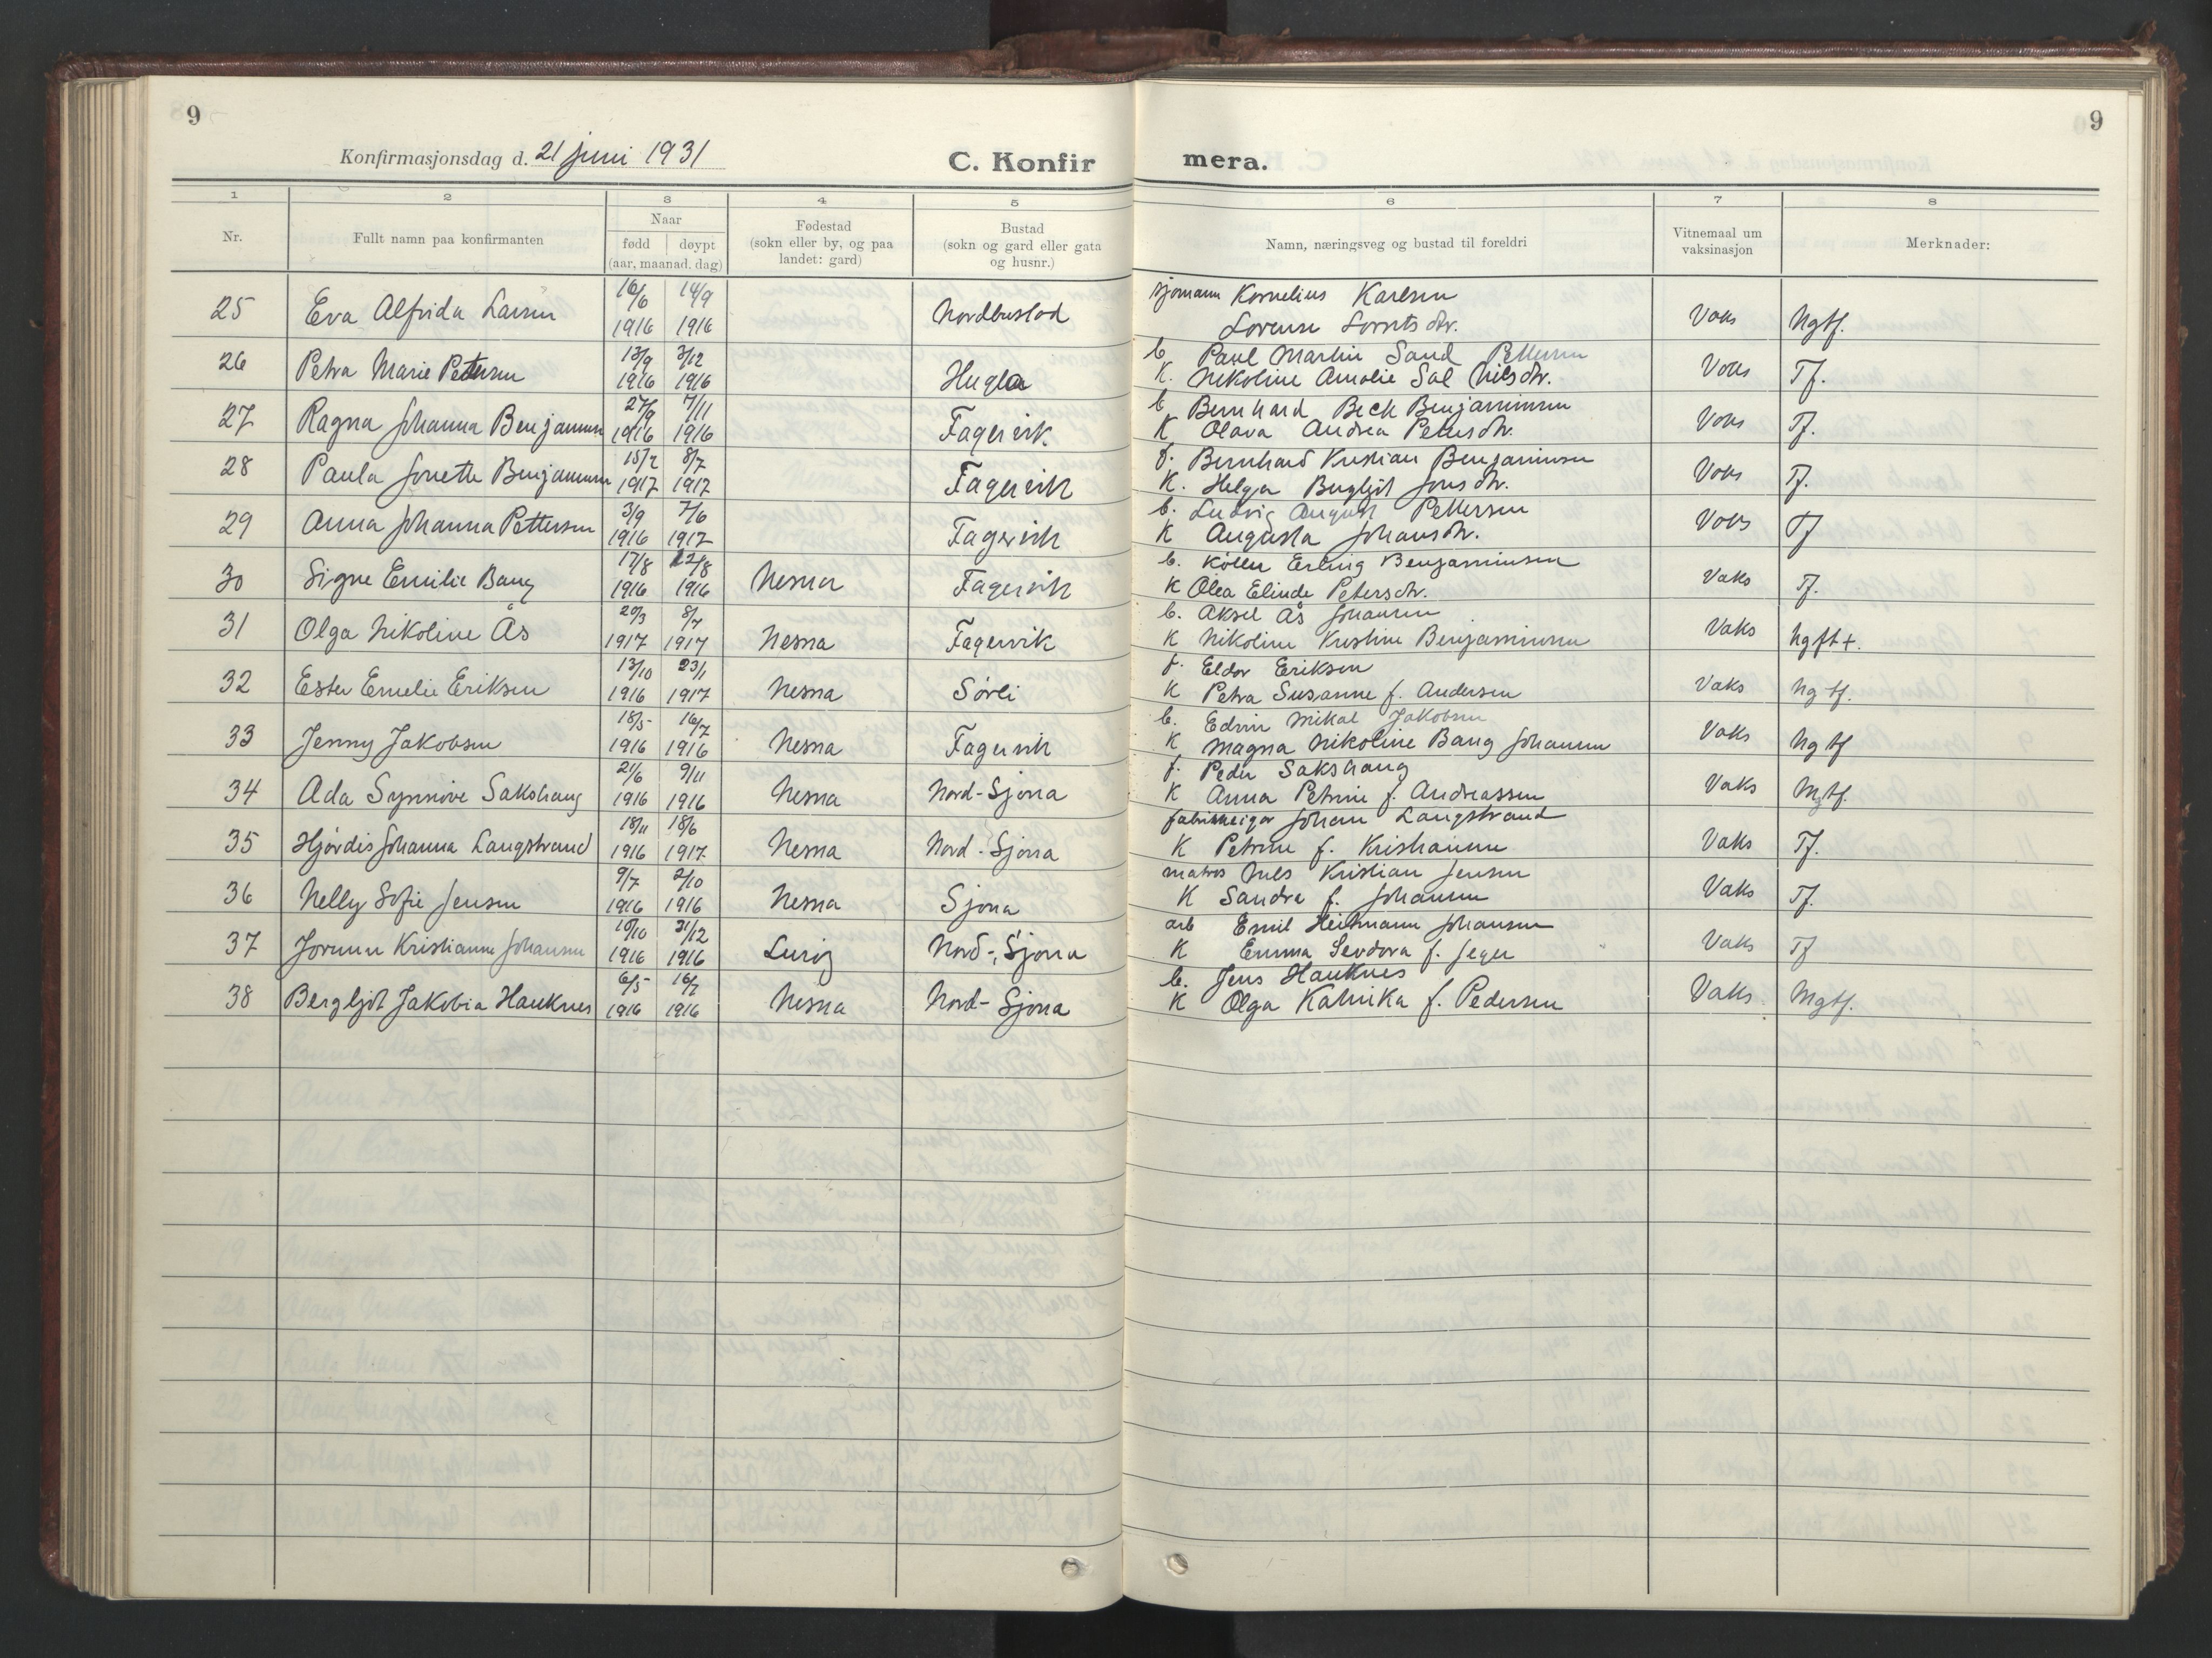 9
9
Konfirmasjonsdag d. 21 juni 1931
C. Konfir mera.
1 2 3 4 5 6 7 8
Nr.
Fullt namn paa konfirmanten
Naar
fødd døypt
(aar, maanad, dag)
Fødestad
(sokn eller by, og paa
landet: gard)
Bustad
(sokn og gard eller gata
og husnr.)
Namn, næringsveg og bustad til foreldri
Vitnemaal um
vaksinasjon
Merknader:
25 Eva Alfrida Larsen 16/6 1916 14/9 1916 Nordbustad sjømann Kornelius Karlsen
Lorense Lorntsdtr. Vaks Ngtf.
26 Petra Marie Pettersen 13/9 1916 3/12 1916 Hugla b. Paul Martin Sand Pettersen
K. Nikoline Amalie Sal Nilsdtr. Vaks Tf.
27 Ragna Johanna Benjaminsen 27/9 1916 7/11 1916 Fagervik b. Bernhard Beck Benjaminsen
K Olava Andrea Petersdtr. Vaks Tf.
28 Paula Jonette Benjaminsen 15/2 1917 8/7 1917 Fagervik f. Bernhard Kristian Benjaminsen
K. Helga Bergljot Jonsdtr. Vaks Tf.
29 Anna Johanna Pettersen 3/9 1916 7/6 1917 Fagervik b. Ludvig August Pettersen
K Augusta Johansdtr. Vaks Tf
30 Signe Emilie Bang 17/8 1916 22/8 1916 Nesna Fagervik b. Køller Erling Benjaminsen
K Olea Elinde Petersdtr. Vaks Tf.
31 Olga Nikoline Ås 20/3 1917 8/7 1917 Nesna Fagervik b. Aksel Ås Johansen
K Nikoline Kristine Benjaminsen Vaks Ngft+.
32 Ester Emelie Eriksen 13/10 1916 23/1 1917 Nesna Sørli f. Eldor Eriksen
K Petra Susanne f. Andersen Vaks Ng tf.
33 Jenny Jakobsen 18/5 1916 16/7 1916 Nesna Fagervik b. Edvin Mikal Jakobsen
K Magna Nikoline Bang Johansen Vaks Ng tf
34 Ada Synnøve Sakshaug 21/6 1916 9/11 1916 Nesna Nord-Sjona f. Peder Sakshaug
K Anna Petrine f. Andreassen Vaks Mgtf.
35 Hjørdis Johanna Langstrand 18/11 1916 18/6 1917 Nesna Nord-Sjona fabrikkeigar Johan Langstrand
K Petrine f. Kristiansen Vaks Tf.
36 Nelly Sofie Jensen 9/7 1916 2/10 1916 Nesna Sjona matros Nils Kristian Jensen
K Sandra f. Johansen Vaks Tf.
37 Jorunn Kristianne Johansen 10/10 1916 31/12 1916 Lurøy Nord-Sjona arb Emil Heitmann Johansen
K Emma Sevdora f. Jeger Vaks Tf
38 Bergljot Jakobia Hauknes 6/5 1916 16/7 1916 Nesna Nord-Sjona b. Jens Hauknes
K Olga Katinka f. Pedersen Vaks. Mgtf.